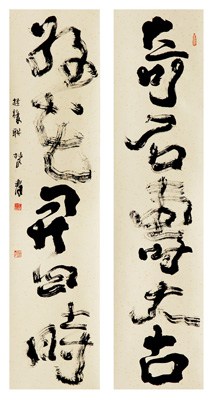 奇石壽太古
好花開四時